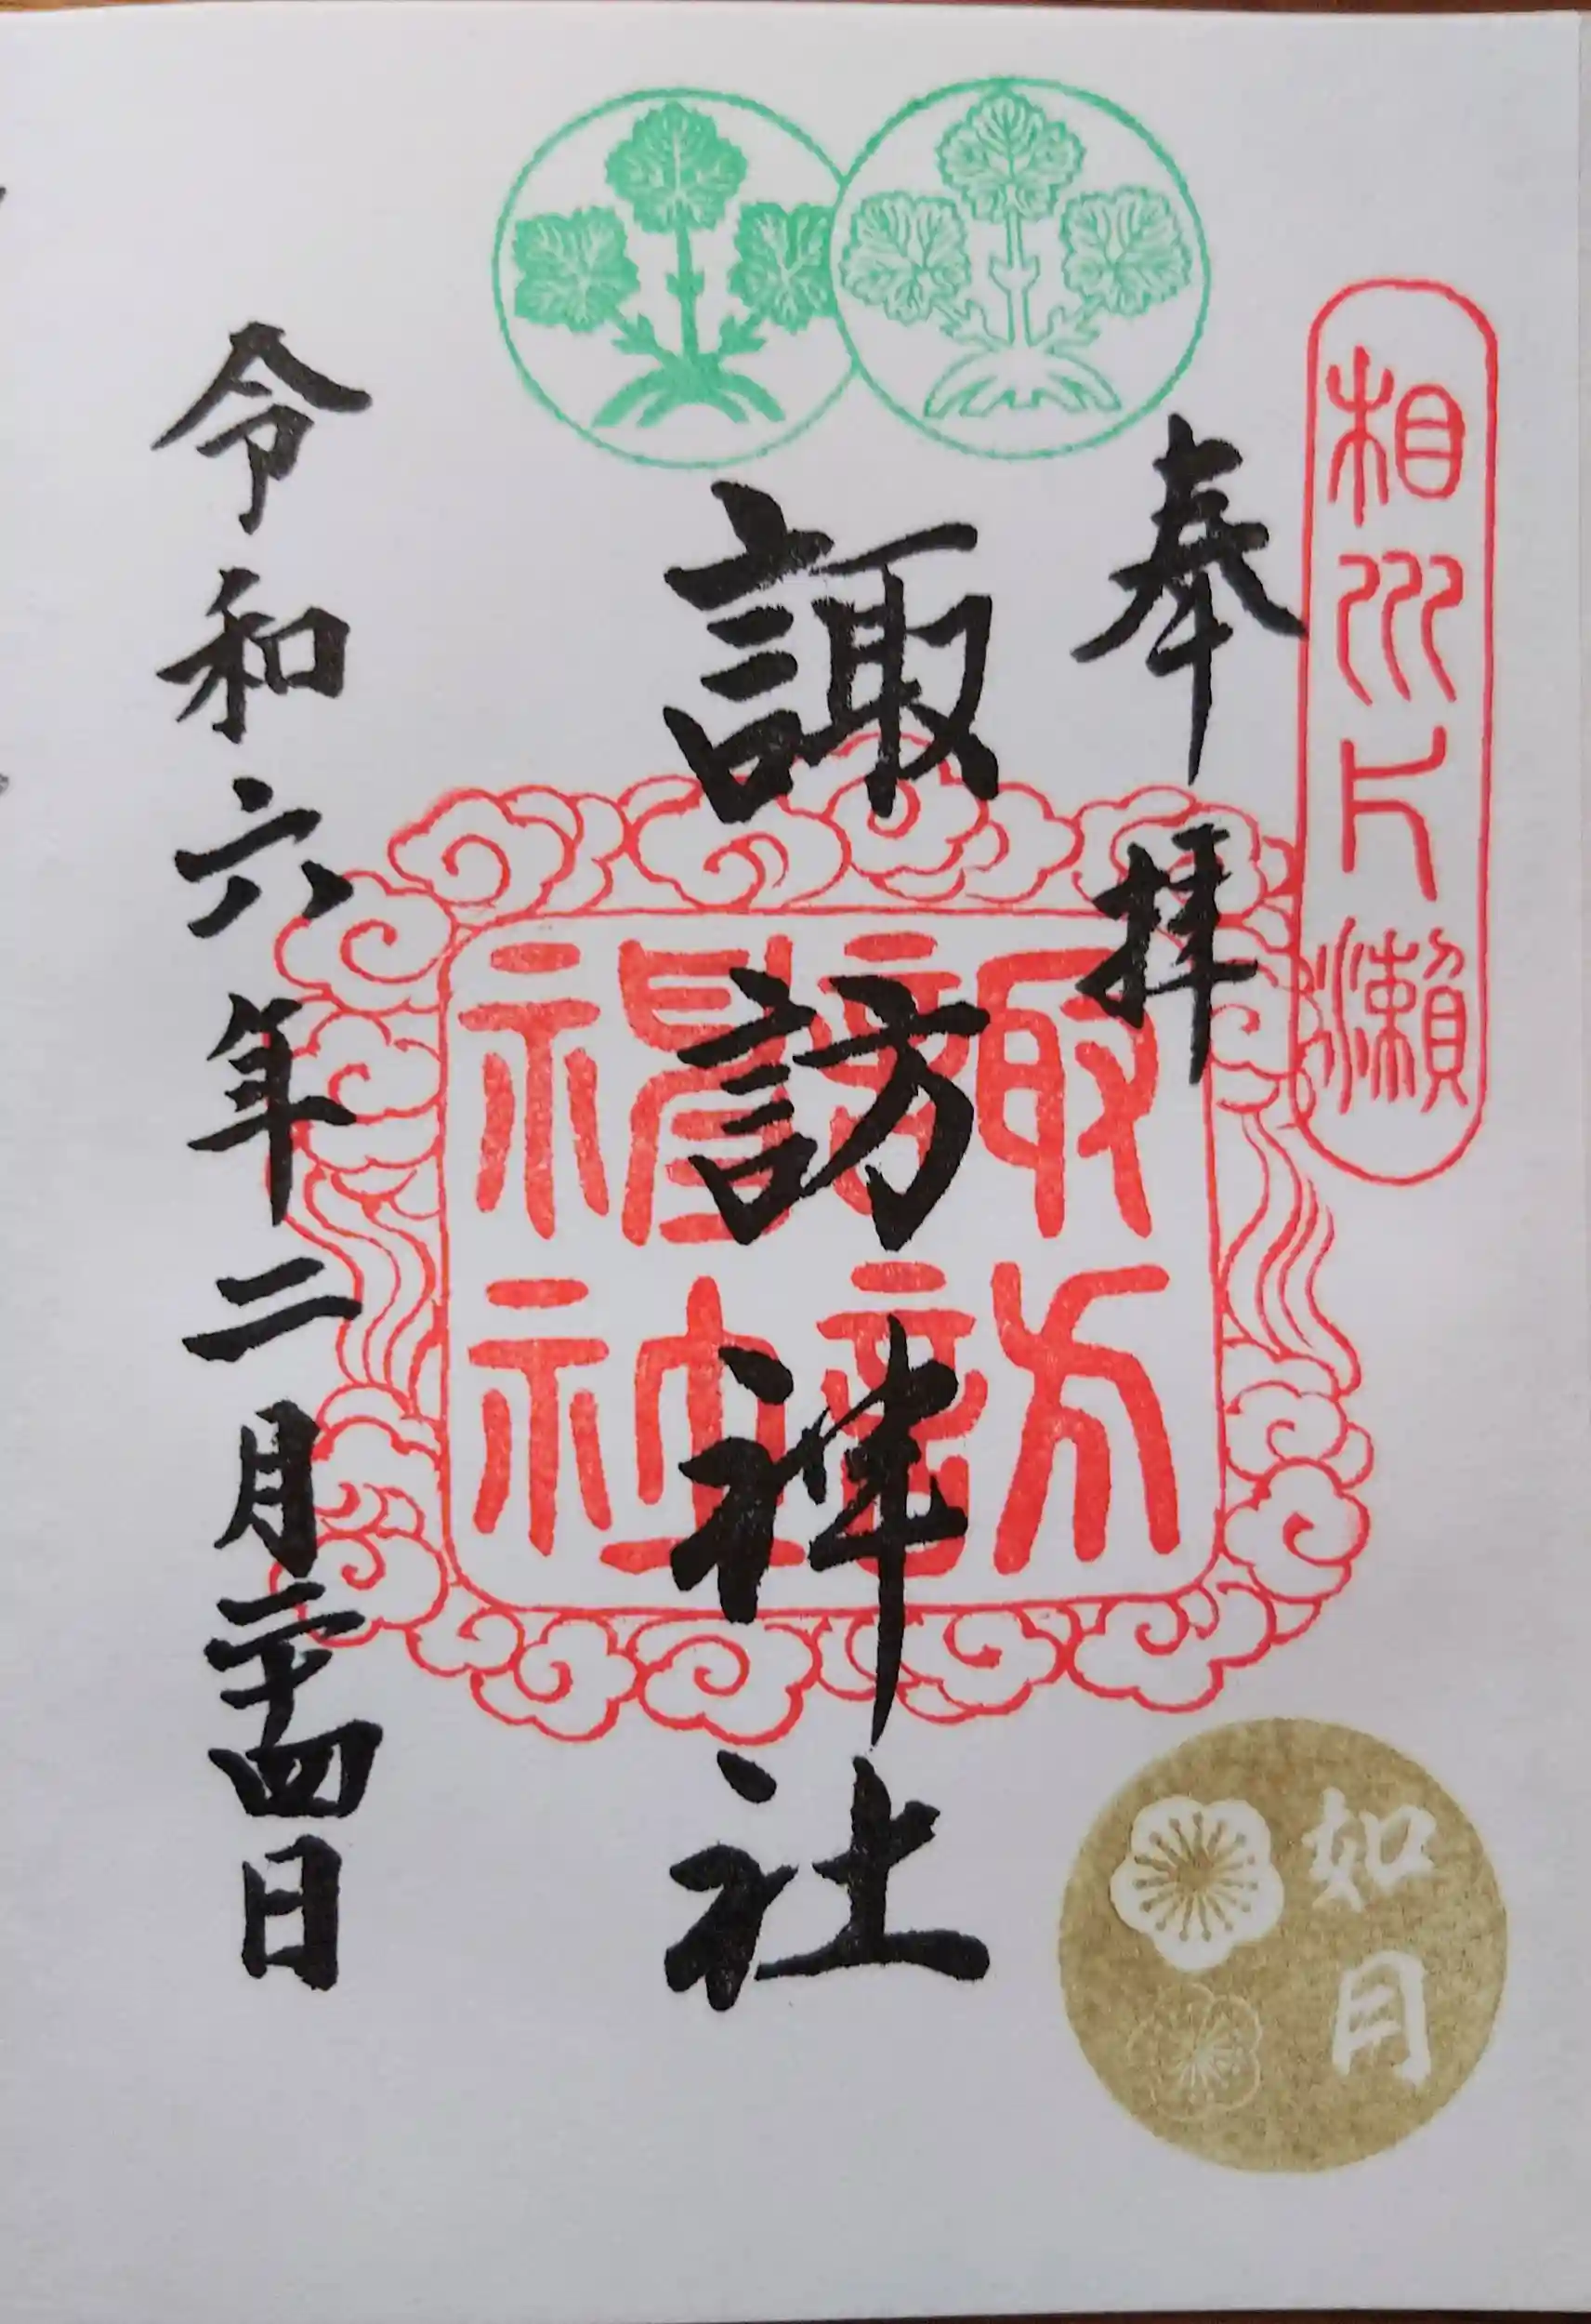 相州片瀬
奉拝
諏訪神社
諏訪
神社
令和六年二月二十四日
如月